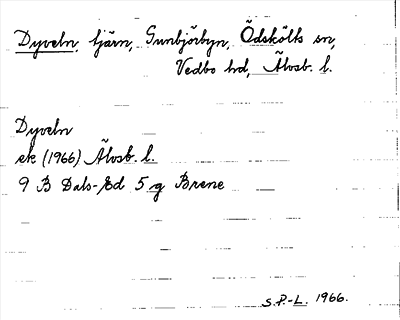 Dyveln, tjärn, Gunbjörbyn, Ödskölts sn,
Vedbo hd, Älvsb. l.
Dyveln
ek (1966) Älvsb. l.
9 B Dals-Ed 5 g Brene
S.P.-L. 1966.